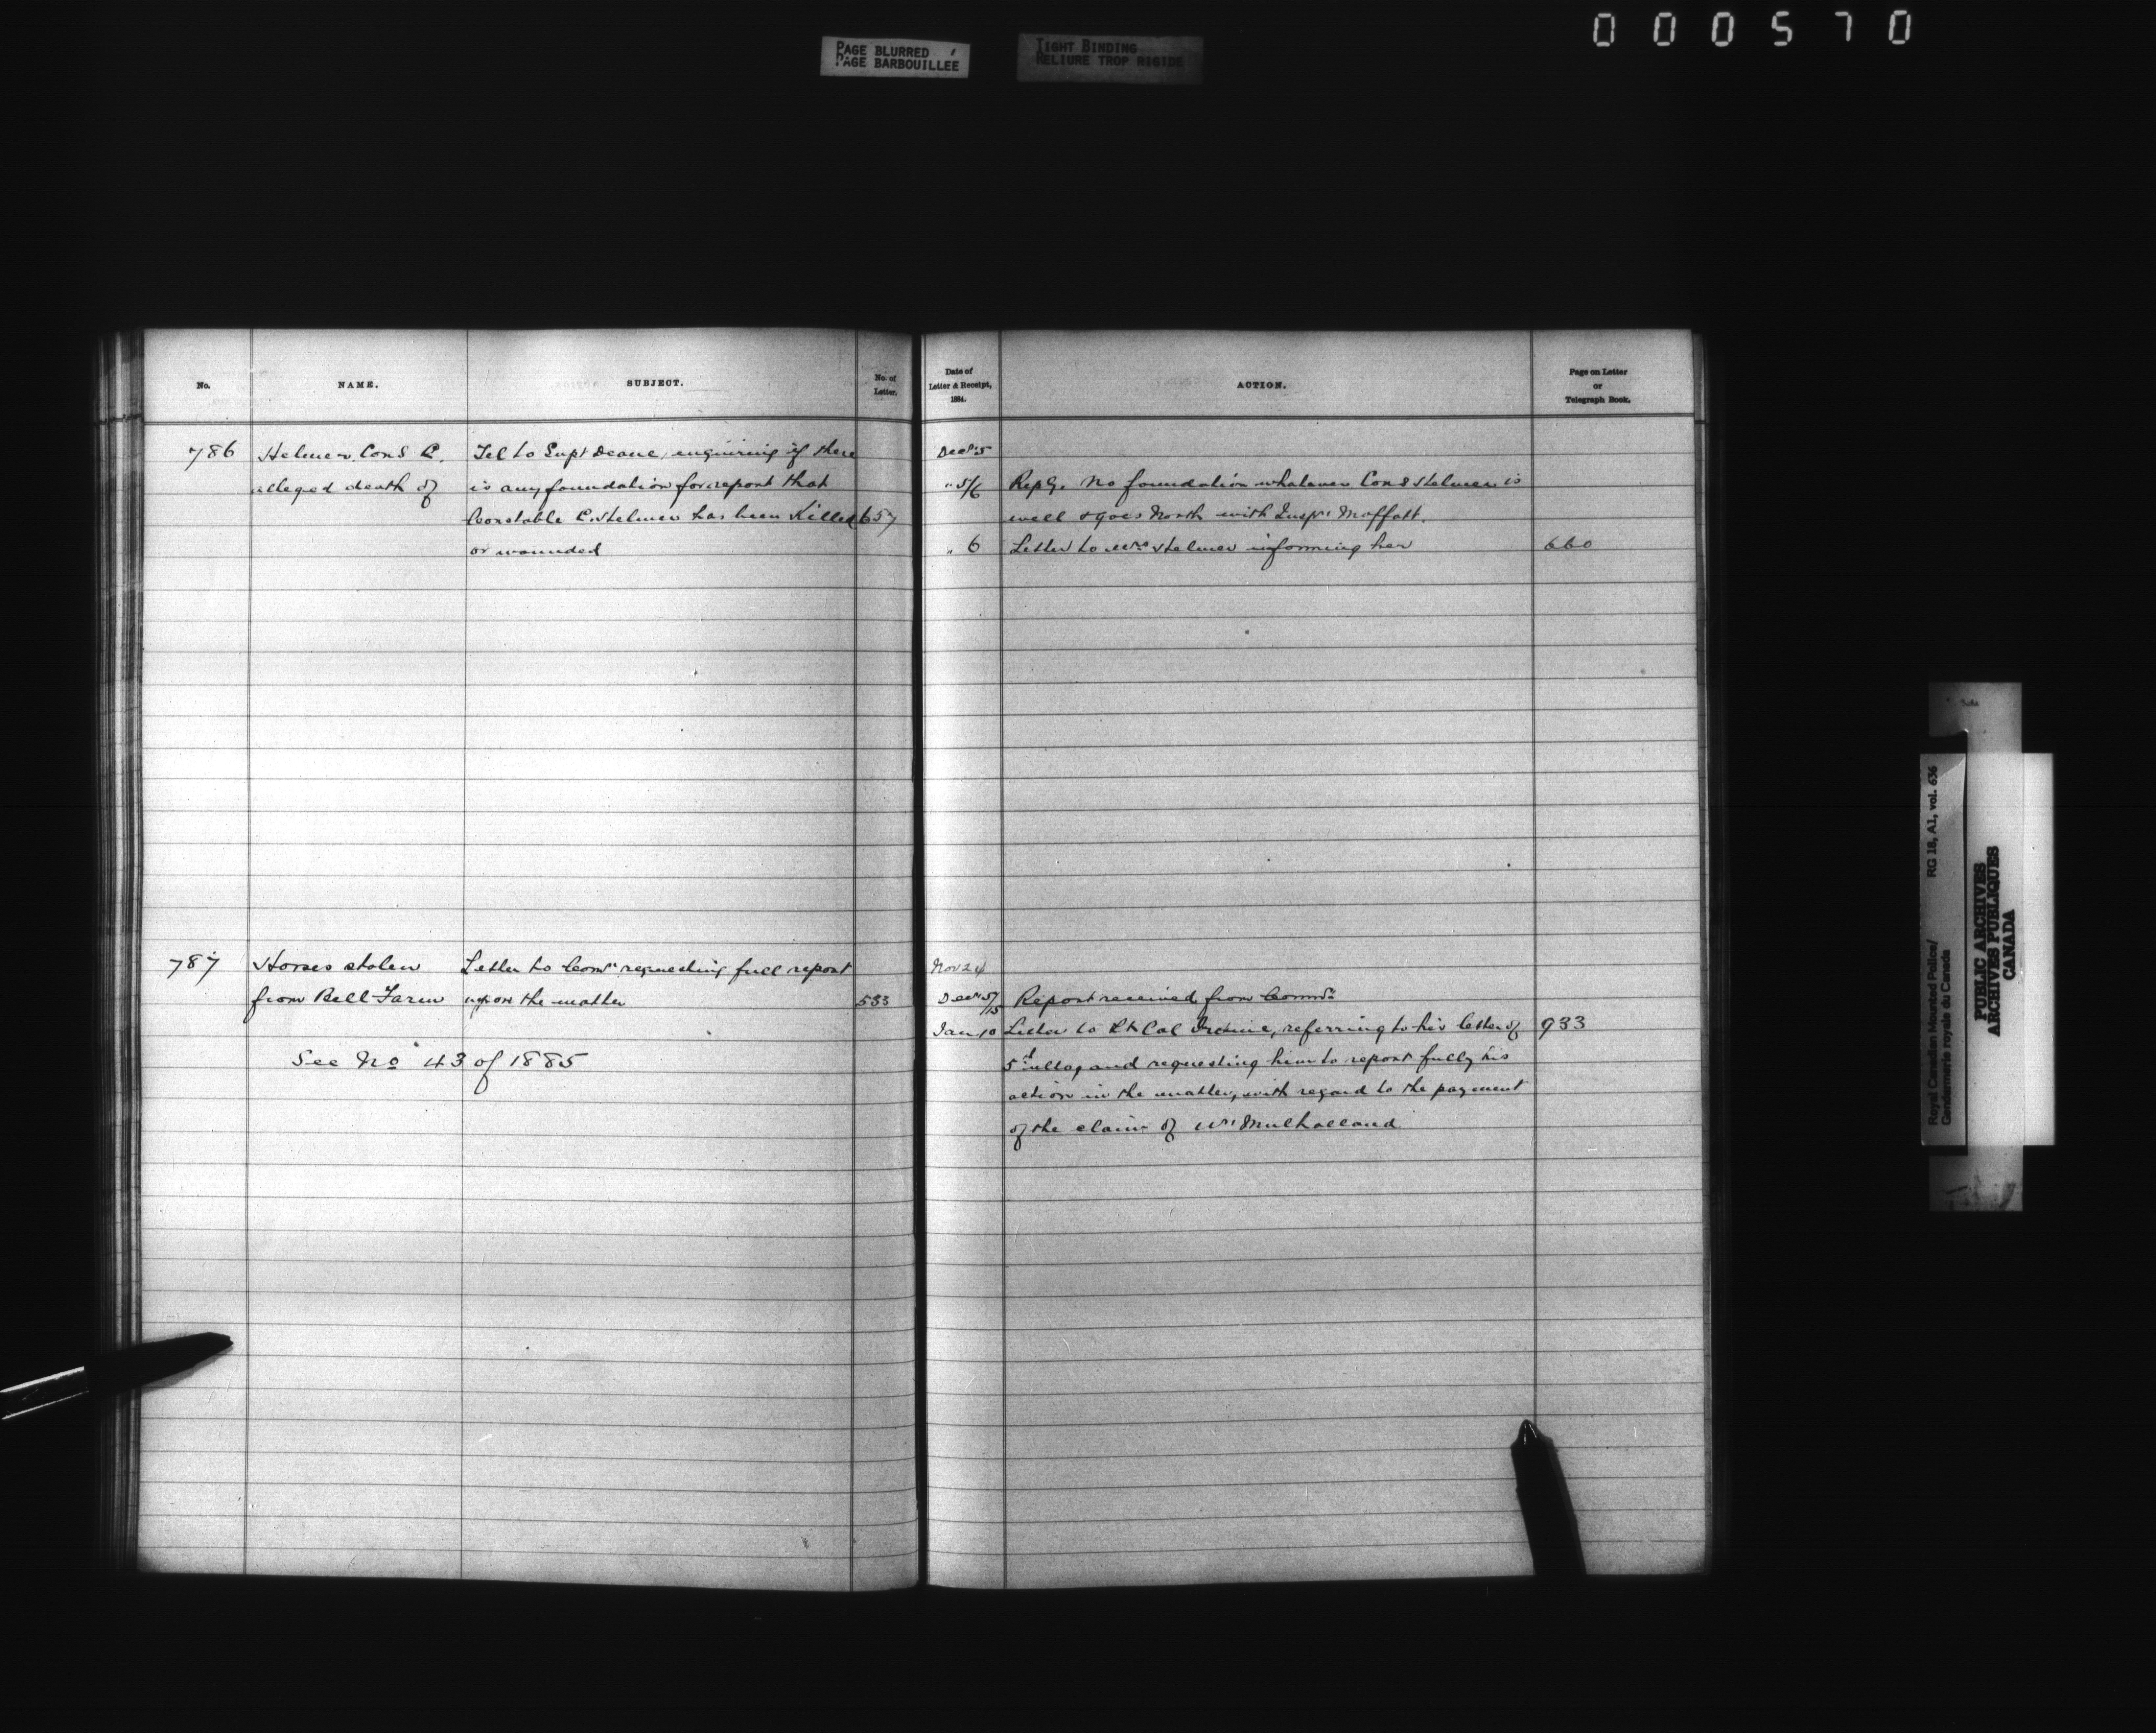 000570
PAGE BLURRED
PAGE BARBOUILLÉE
TIGHT BINDING
RELIURE TROP RIGIDE
No.
NAME.
SUBJECT.
No. of
Letter.
Date of
Letter & Receipt,
1884.
ACTION.
Page on Letter
or
Telegraph Book.
786 Helmer Cons C. Tel to Supt Deane enquiring if there
alleged death of is any foundation for report that
Constable C. Helmer has been Killed 657
or wounded
Decr 5
" 5/6 Reply. No foundation whatever Cons Helmer is
well & goes North with Inspr Moffatt.
" 6 Letter to Mrs Helmer informing her 660
787 Horses stolen Letter to Comr requesting full report
from Bell Farm upon the matter 533
See No 43 of 1885
Nov 24
Decr 5/15 Report received from Commr
Jan 10 Letter to Lt Col Irvine, referring to his letter of 933
5th ulto, and requesting him to report fully his
action in the matter, with regard to the payment
of the claim of Wm Mulholland
Royal Canadian Mounted Police/
Gendarmerie royale du Canada
RG 18, A1, vol. 636
PUBLIC ARCHIVES
ARCHIVES PUBLIQUES
CANADA